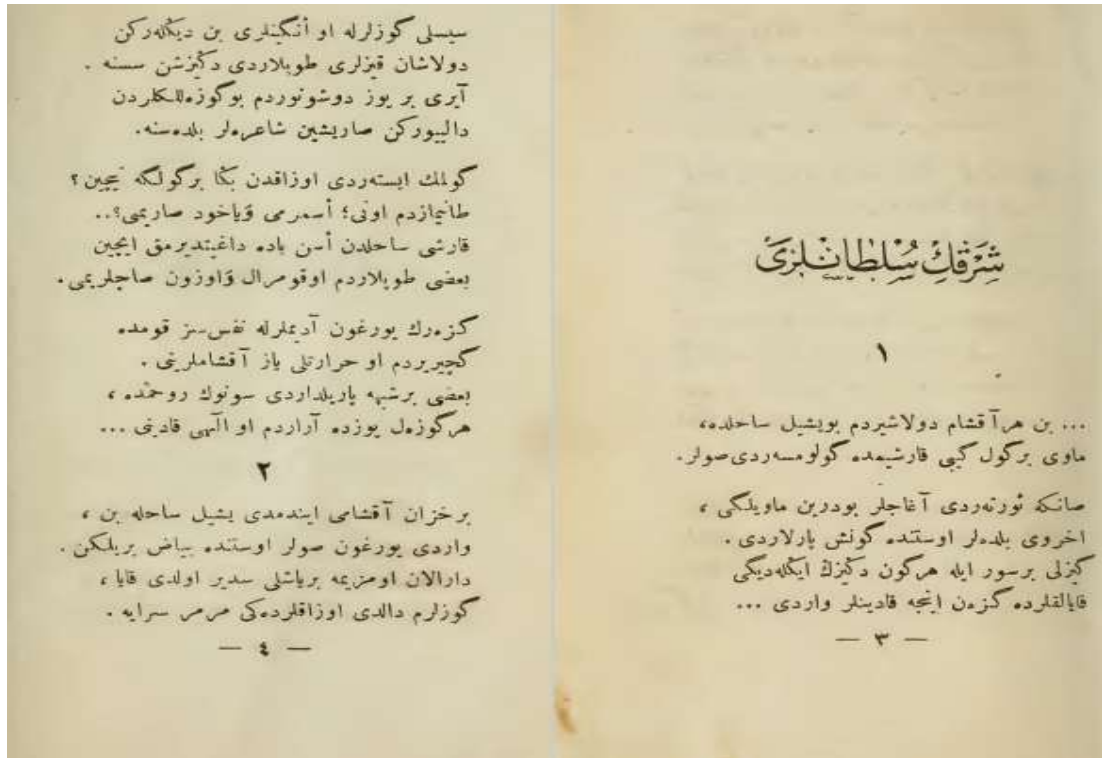 شَرْقِكْ سُلْطَانْلَرِى
١
... بن هر آقشام دولاشيردم بويشيل ساحلده،
ماوى بر گول كبى قارشيمده گولومسه‌ردى صولر.
صانكه ئورته‌ردى آغاجلر بودرين ماويلگى ،
اخروى بلده‌لر اوستنده گونش پارلاردى .
گيزلى برسور ايله هرگون دڭيزڭ ايڭله‌ديگى
قايالقلرده گزه‌ن اينجه قادينلر واردى ...
— ٣ —
سيسلى گوزلرله او أنگينلرى بن ديڭله‌ركن
دولاشان قيزلرى طوپلاردى دڭيزڭ سسنه .
آيرى بر يوز دوشونوردم بوگوزه‌للكلردن
دالييوركن صاريشين شاعره‌لر بلده‌سنه.
گولمك ايسته‌ردى اوزاقدن بڭا برگولگه نيچين ؟
طانيمازدم اونى؛ أسمرمى وياخود صاريمى؟..
قارشى ساحلدن أسن باده داغيتديرمق ايچين
بعضى طوپلاردم اوقومرال واوزون صاچلريمى.
گزه‌رك يورغون آديملرله نفس‌سز قومده
گچيريردم او حرارتلى ياز آقشاملرينى .
بعضى برشبهه پاريلداردى سونوك روحمده ،
هرگوزه‌ل يوزده آراردم او الٓهى قادينى ...
٢
برخزان آقشامى ايندمدى يشيل ساحله بن ،
واردى يورغون صولر اوستنده بياض بريلكن .
دارالان اومزيمه برياشلى سدير اولدى قايا ،
گوزلرم دالدى اوزاقلرده‌كى مرمر سرايه .
— ٤ —